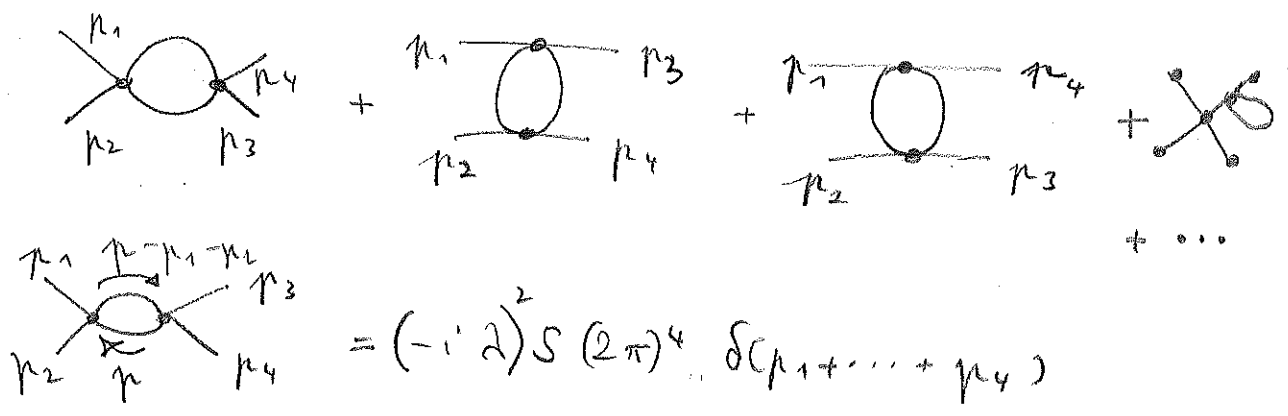 p1 p2 p4 p3 + p1 p3 p2 p4 + p1 p4 p2 p3 +
+ ...
p1 p-p1-p2 p3 p2 p p4 = (-iλ)² S (2π)⁴ δ(p1+...+p4)